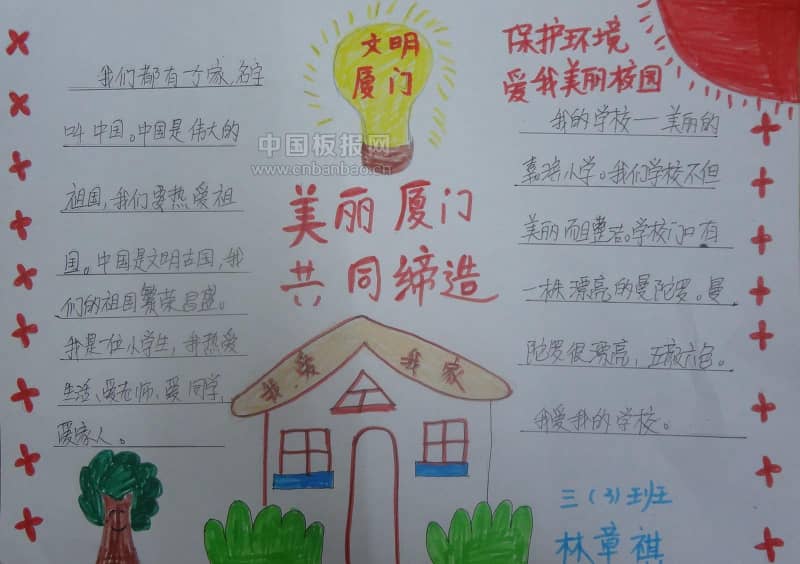 文明
厦门
保护环境
爱我美丽校园
美丽厦门
共同缔造
我们都有一个家,名字
叫中国。中国是伟大的
祖国,我们要热爱祖
国。中国是文明古国,我
们的祖国繁荣昌盛。
我是一位小学生,我热爱
生活、爱老师、爱同学,
爱家人。
我的学校——美丽的
小学。我们学校不但
美丽而且整洁。学校门口有
一株漂亮的曼陀罗。曼
陀罗很漂亮,五颜六色。
我爱我的学校。
我爱我家
三(3)班
林章祺
中国板报网
www.cnbanbao.cn